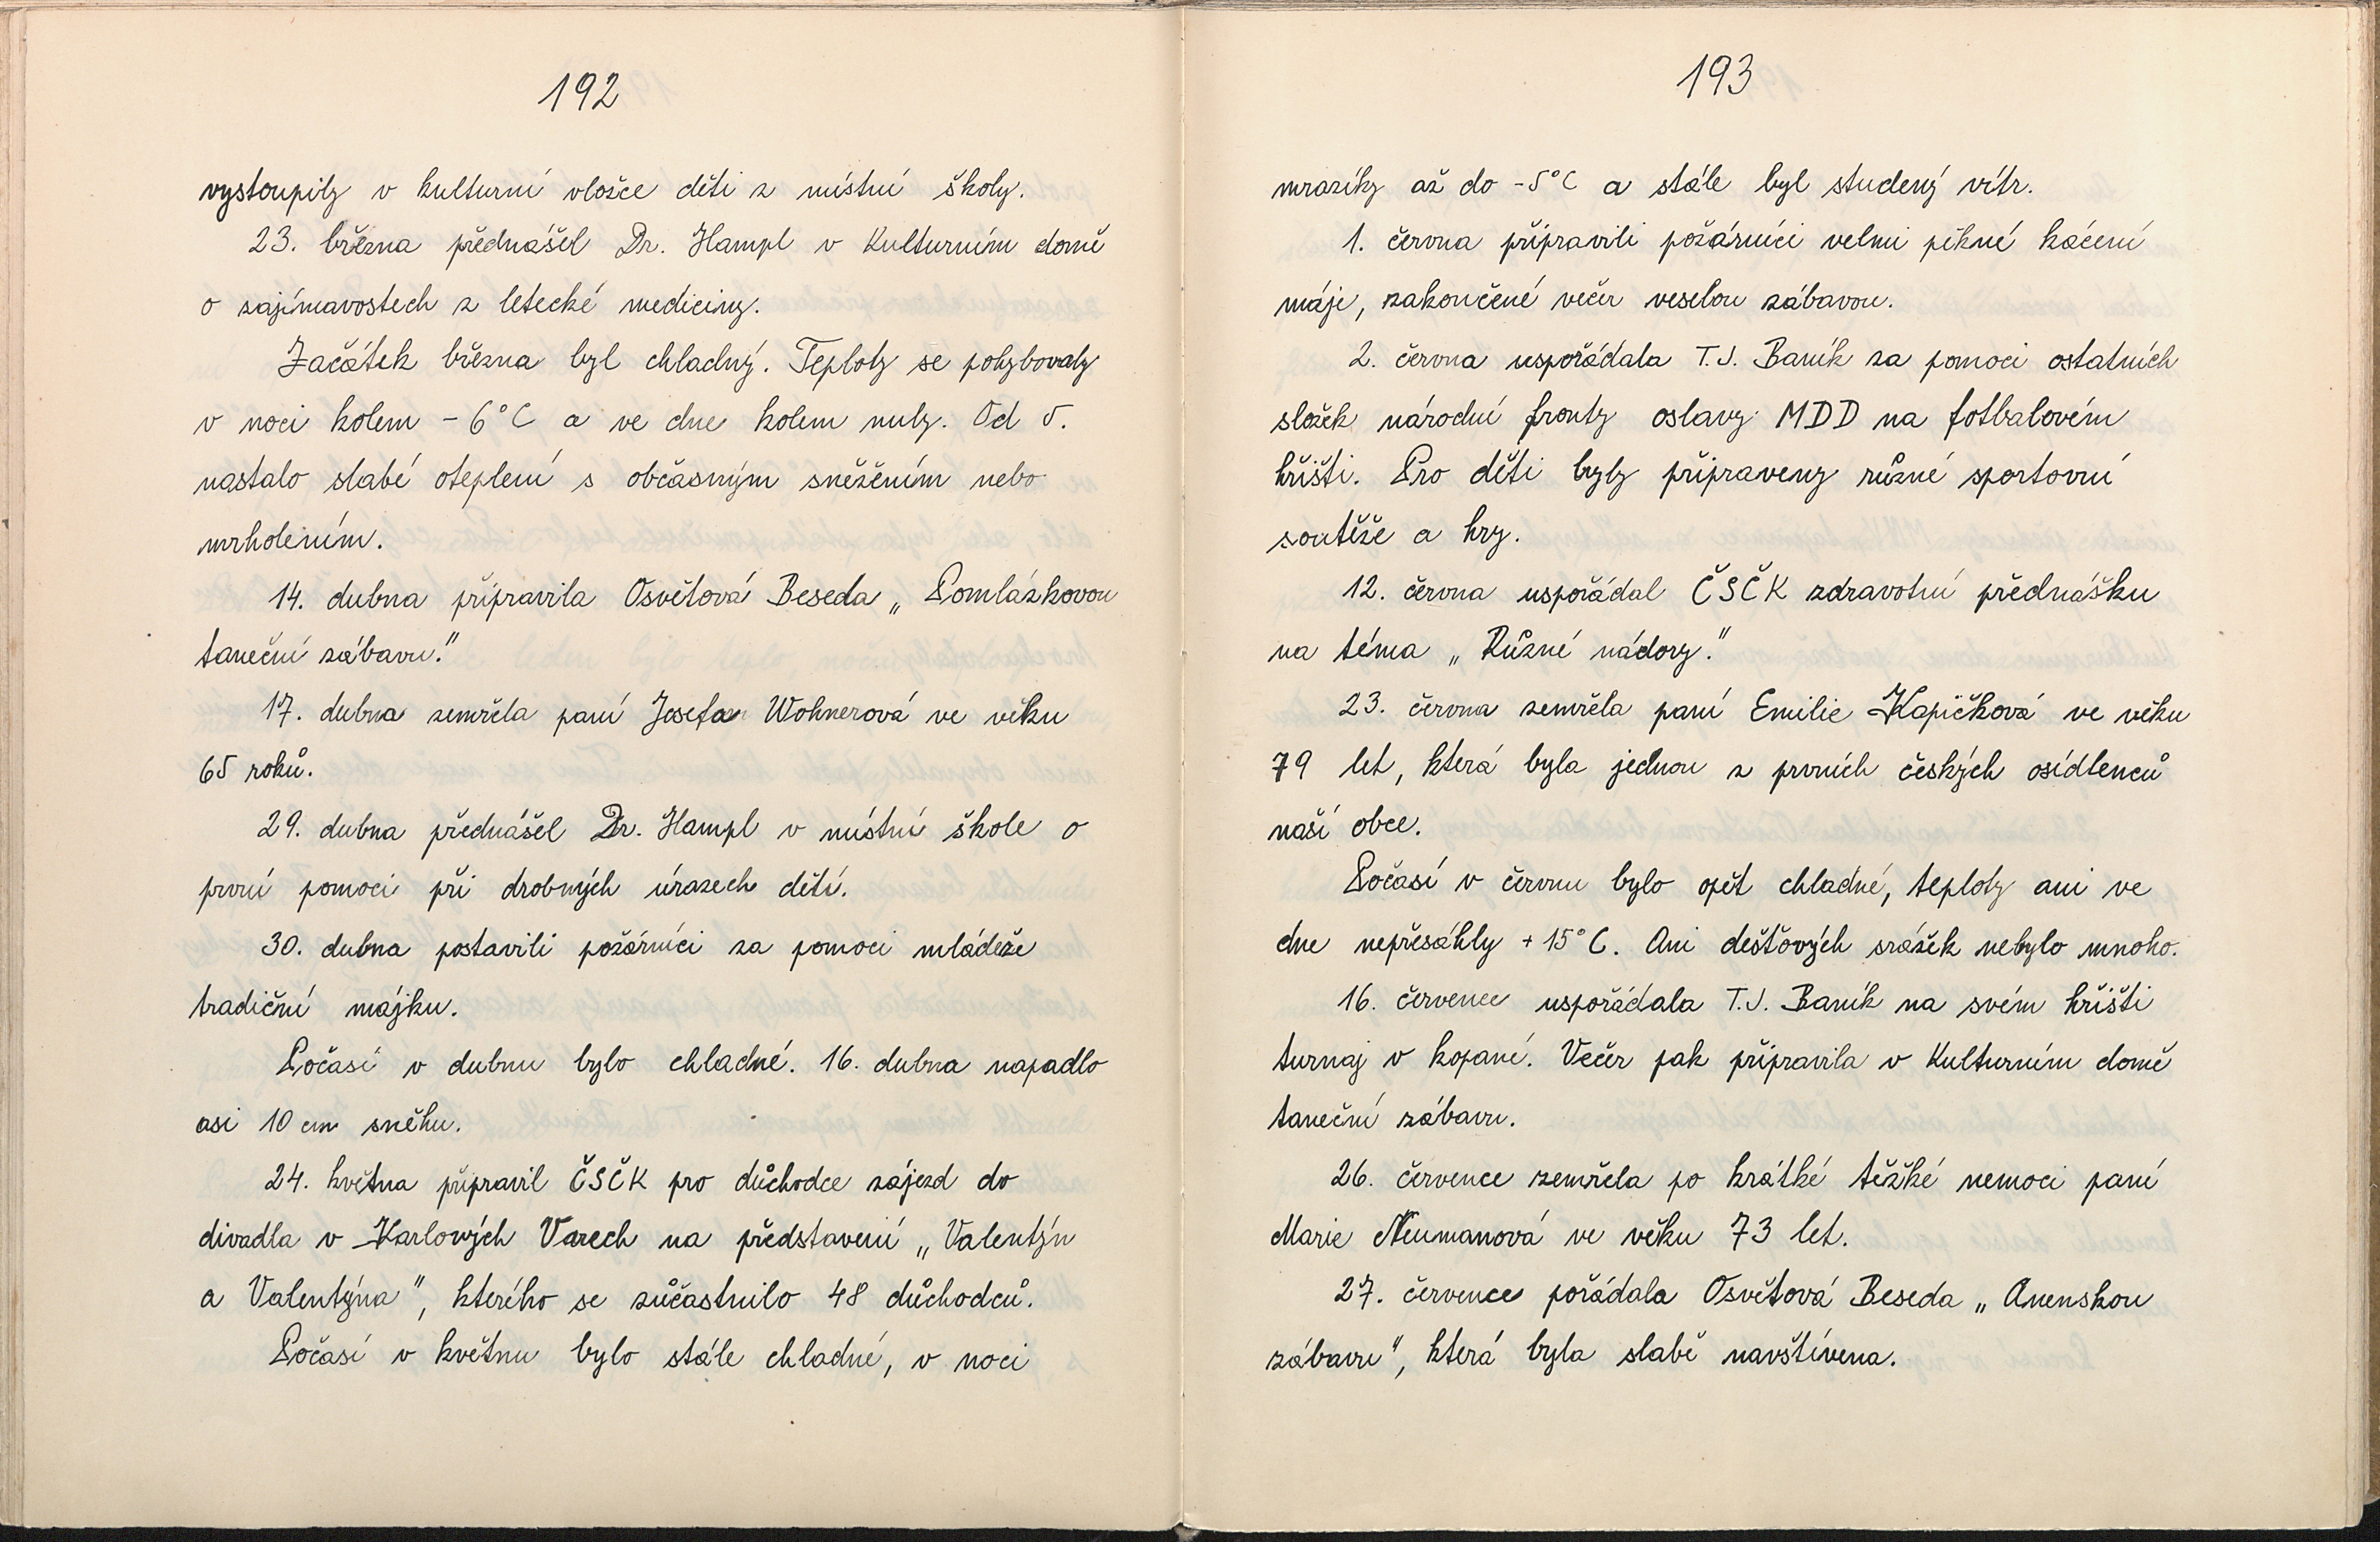 192
vystoupily v kulturní vložce děti z místní školy.
23. března přednášel Dr. Hampl v Kulturním domě
o zajímavostech z letecké medicíny.
Začátek března byl chladný. Teploty se pohybovaly
v noci kolem -6°C a ve dne kolem nuly. Od 5.
nastalo slabé oteplení s občasným sněžením nebo
mrholením.
14. dubna připravila Osvětová Beseda „Pomlázkovou
taneční zábavu."
17. dubna zemřela paní Josefa Wohnerová ve věku
65 roků.
29. dubna přednášel Dr. Hampl v místní škole o
první pomoci při drobných úrazech dětí.
30. dubna postavili požárníci za pomoci mládeže
tradiční májku.
Počasí v dubnu bylo chladné. 16. dubna napadlo
asi 10 cm sněhu.
24. května připravil ČSČK pro důchodce zájezd do
divadla v Karlových Varech na představení „Valentýn
a Valentýna", kterého se zůčastnilo 48 důchodců.
Počasí v květnu bylo stále chladné, v noci
193
mrazíky až do -5°C a stále byl studený vítr.
1. června připravili požárníci velmi pěkné kácení
máje, zakončené večer veselou zábavou.
2. června uspořádala T.J. Baník za pomoci ostatních
složek národní fronty oslavy MDD na fotbalovém
hřišti. Pro děti byly připraveny různé sportovní
soutěže a hry.
12. června uspořádal ČSČK zdravotní přednášku
na téma „Různé nádory."
23. června zemřela paní Emilie Kapičková ve věku
79 let, která byla jednou z prvních českých osídlenců
naší obce.
Počasí v červnu bylo opět chladné, teploty ani ve
dne nepřesáhly +15°C. Ani dešťových srážek nebylo mnoho.
16. července uspořádala T.J. Baník na svém hřišti
turnaj v kopané. Večer pak připravila v Kulturním domě
taneční zábavu.
26. července zemřela po krátké těžké nemoci paní
Marie Neumanová ve věku 73 let.
27. července pořádala Osvětová Beseda „Anenskou
zábavu", která byla slabě navštívena.